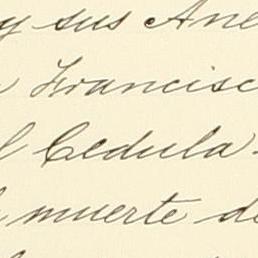 y sus Ane
Francisc
l Cedula
muerte de